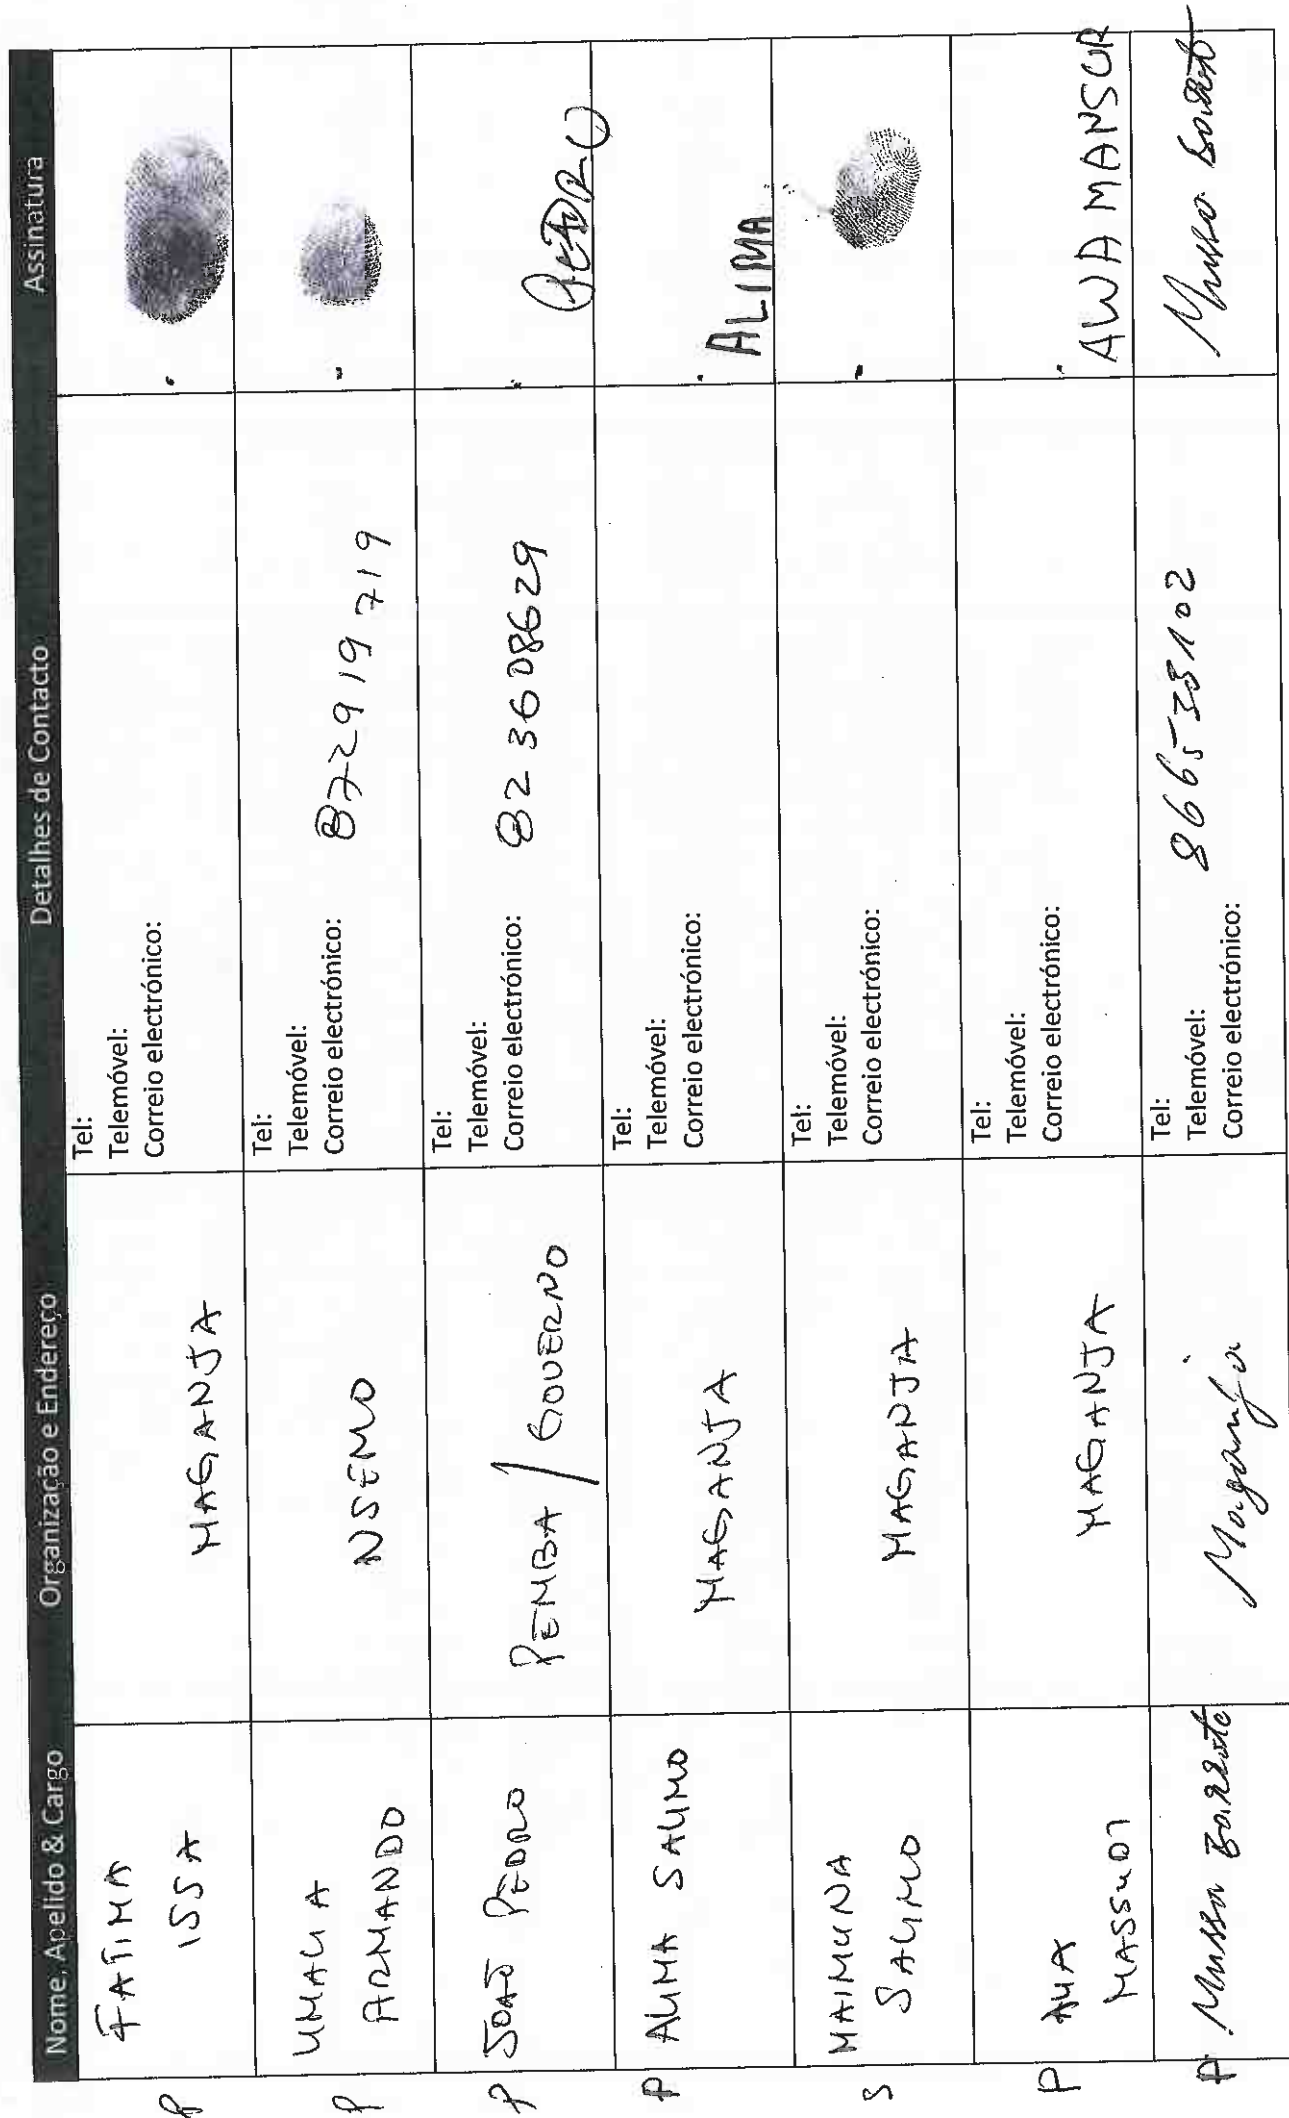 Nome, Apelido & Cargo Organização e Endereço Detalhes de Contacto Assinatura
P FATIMA
ISSA
MAGANJA
Tel:
Telemóvel:
Correio electrónico:
P
ARMANDO
NSEMO
Tel:
Telemóvel:
Correio electrónico: 872919719
P JOAO PEDRO
PEMBA / GOVERNO
Tel:
Telemóvel:
Correio electrónico: 823608629
PEDRO
P ALIMA SALIMO
MAGANJA
Tel:
Telemóvel:
Correio electrónico:
ALIMA
S MAIMUNA
SALIMO
MAGANJA
Tel:
Telemóvel:
Correio electrónico:
P
MAGANJA
Tel:
Telemóvel:
Correio electrónico:
AWA MANSUR
P Mussa
Maganja
Tel:
Telemóvel:
Correio electrónico:
Mussa